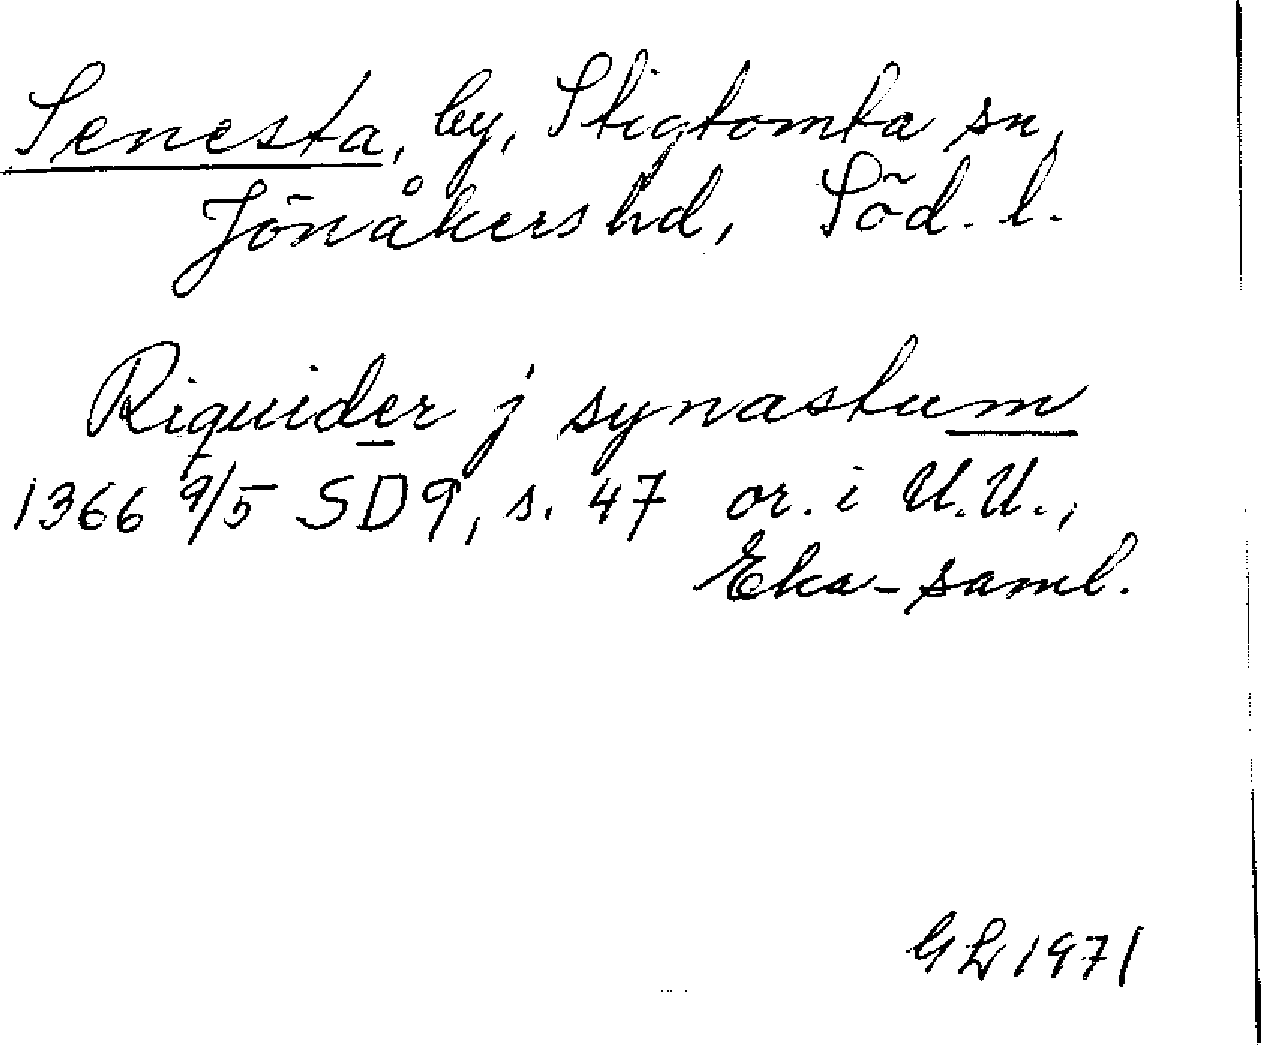 Senesta, by, Stigtomta sn,
Jönåkers hd, Söd. l.
Riquider j synastum
1366 9/5 SD9, s. 47 or. i U.U.,
Eka-saml.
GL 1971